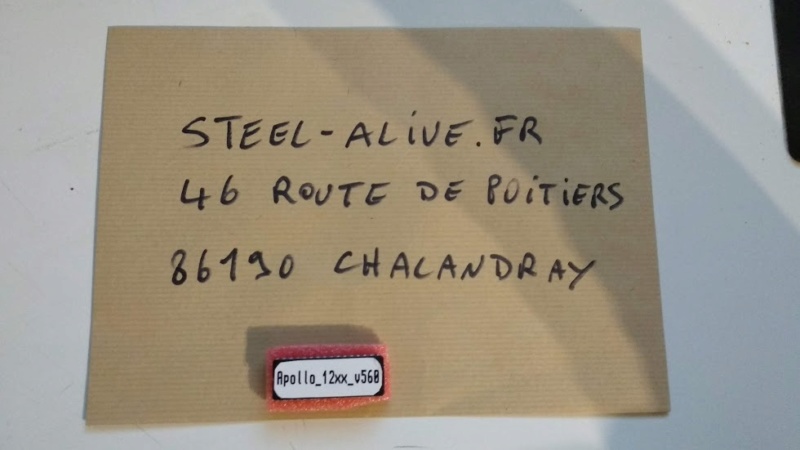 STEEL-ALIVE.FR
46 ROUTE DE POITIERS
86190 CHALANDRAY
Apollo_12xx_v560